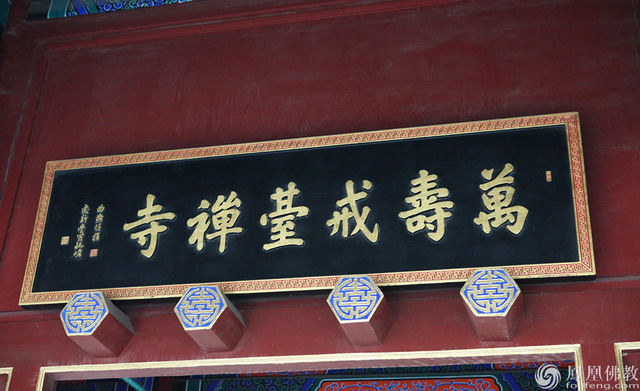 萬壽戒臺禪寺
凤凰佛教
fo.ifeng.com